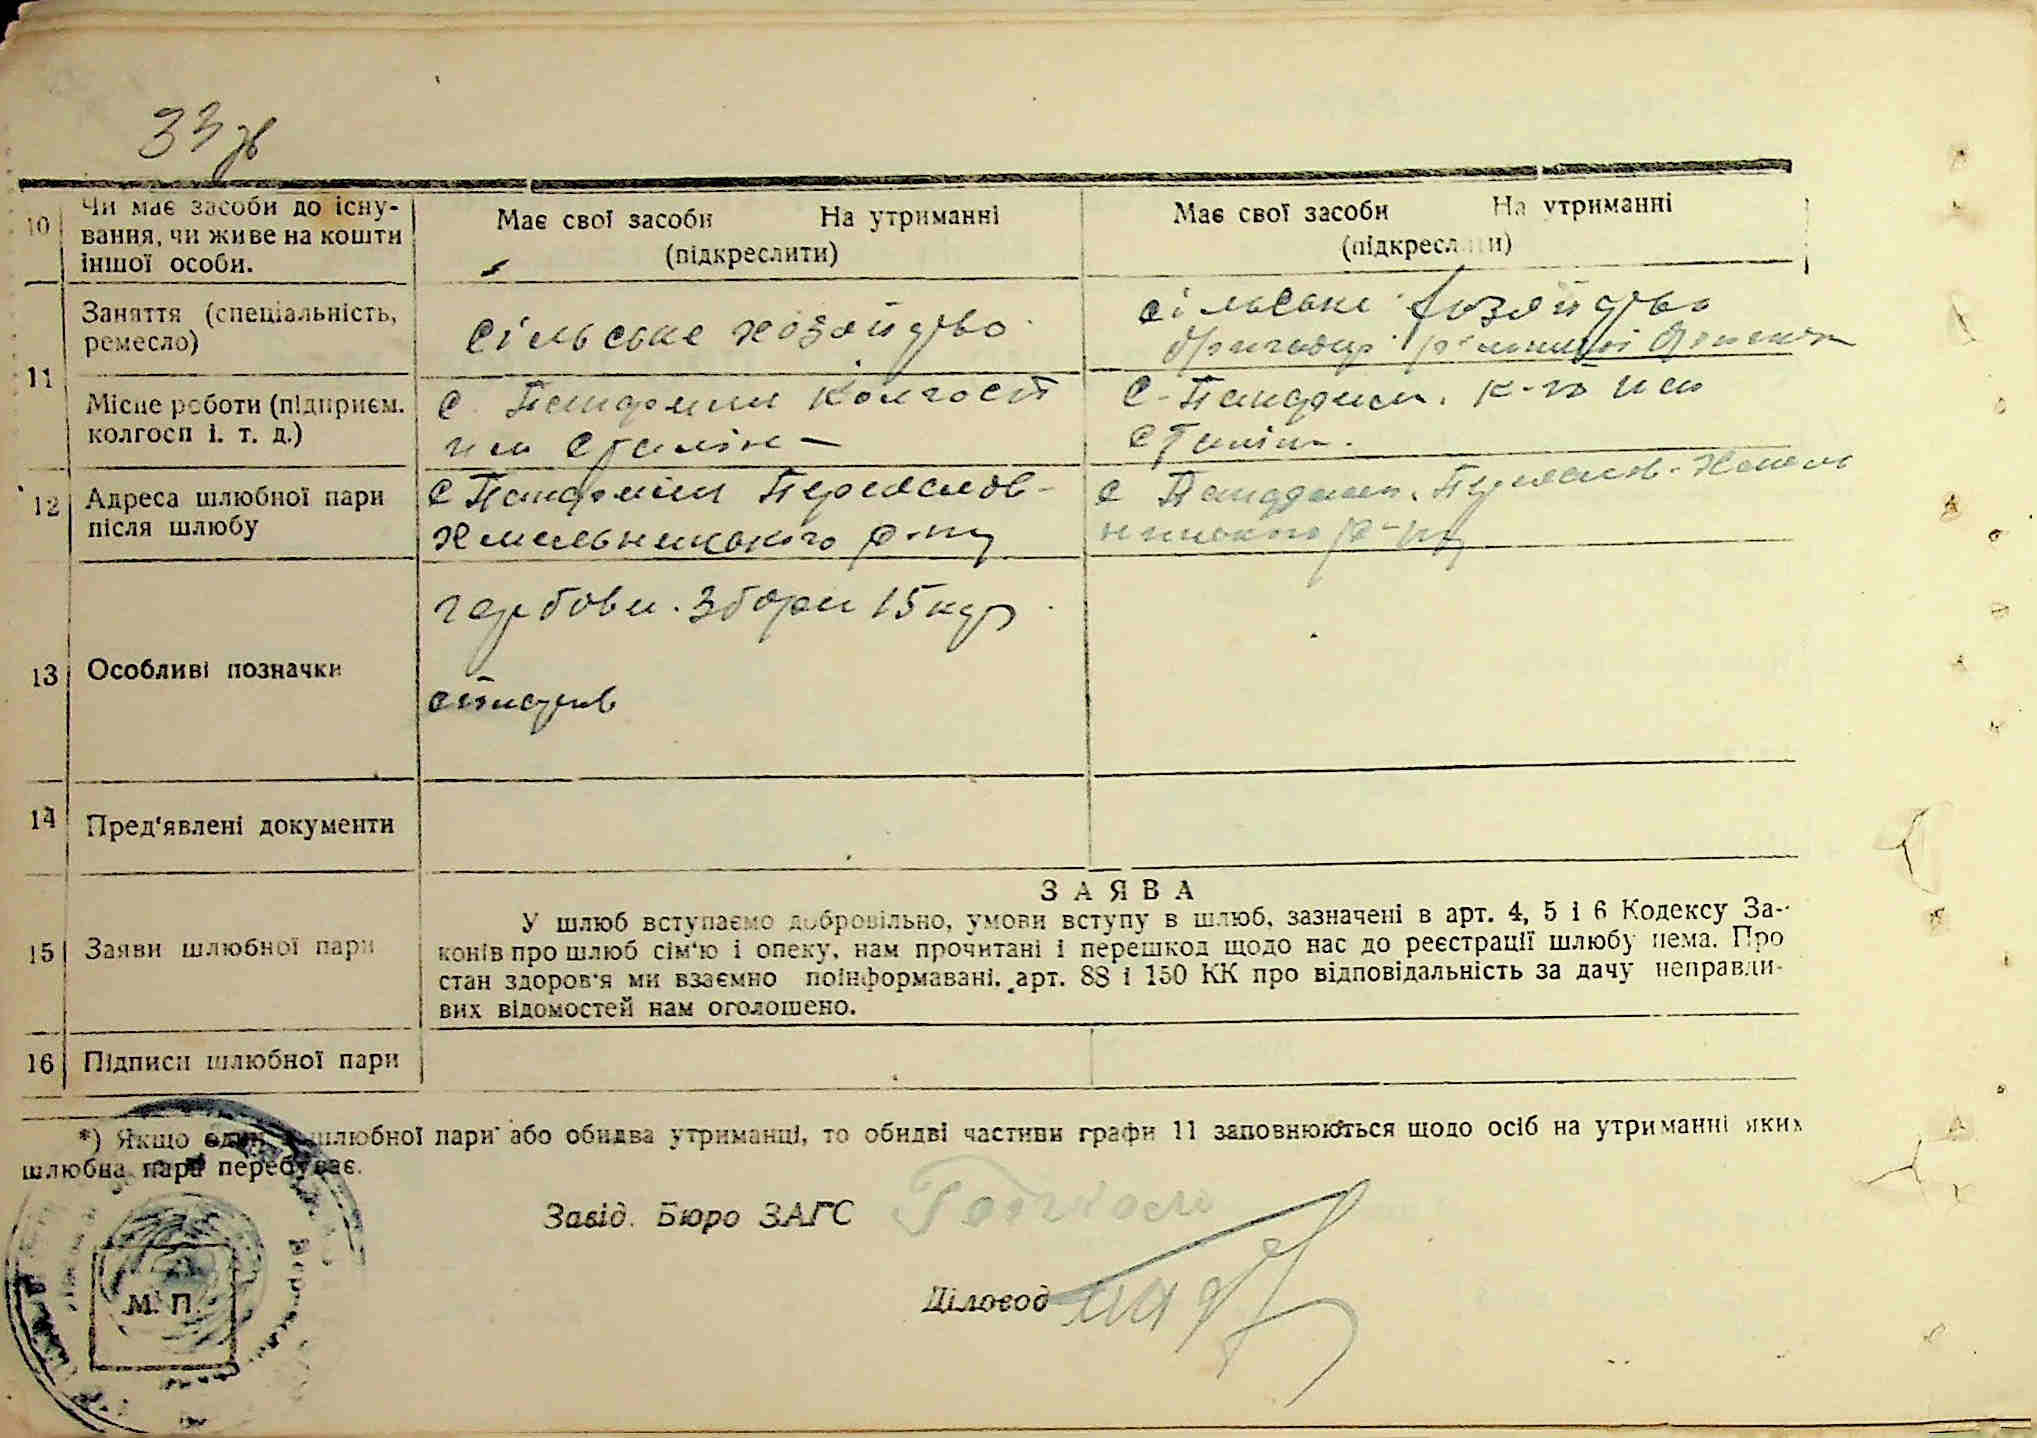 33 зв
10 Чи має засоби до існу-
вання, чи живе на кошти
іншої особи.
Має свої засоби На утриманні
(підкреслити)
Має свої засоби На утриманні
(підкреслити)
11 Заняття (спеціальність,
ремесло)
сільське хозяйство
сільське хозяйство
Місце роботи (підприєм.
колгосп і. т. д.)
с. Пандоми колгосп
им Сталін
с. к-гб им
Сталін.
12 Адреса шлюбної пари
після шлюбу
с Переяслов-
Хмельницького р-ну
с Переяслов-Хмель
ницького р-ну
13 Особливі позначки
гербови. збори 15 кар
14 Пред'явлені документи
15 Заяви шлюбної пари
ЗАЯВА
У шлюб вступаємо добровільно, умови вступу в шлюб, зазначені в арт. 4, 5 і 6 Кодексу За-
конів про шлюб сім'ю і опеку, нам прочитані і перешкод щодо нас до реєстрації шлюбу нема. Про
стан здоров'я ми взаємно поінформавані. арт. 88 і 150 КК про відповідальність за дачу неправди-
вих відомостей нам оголошено.
16 Підписи шлюбної пари
*) Якщо один з шлюбної пари або обидва утриманці, то обидві частини графи 11 заповнюються щодо осіб на утриманні яких
шлюбна пара перебуває.
Завід. Бюро ЗАГС
Діловод
М. П.